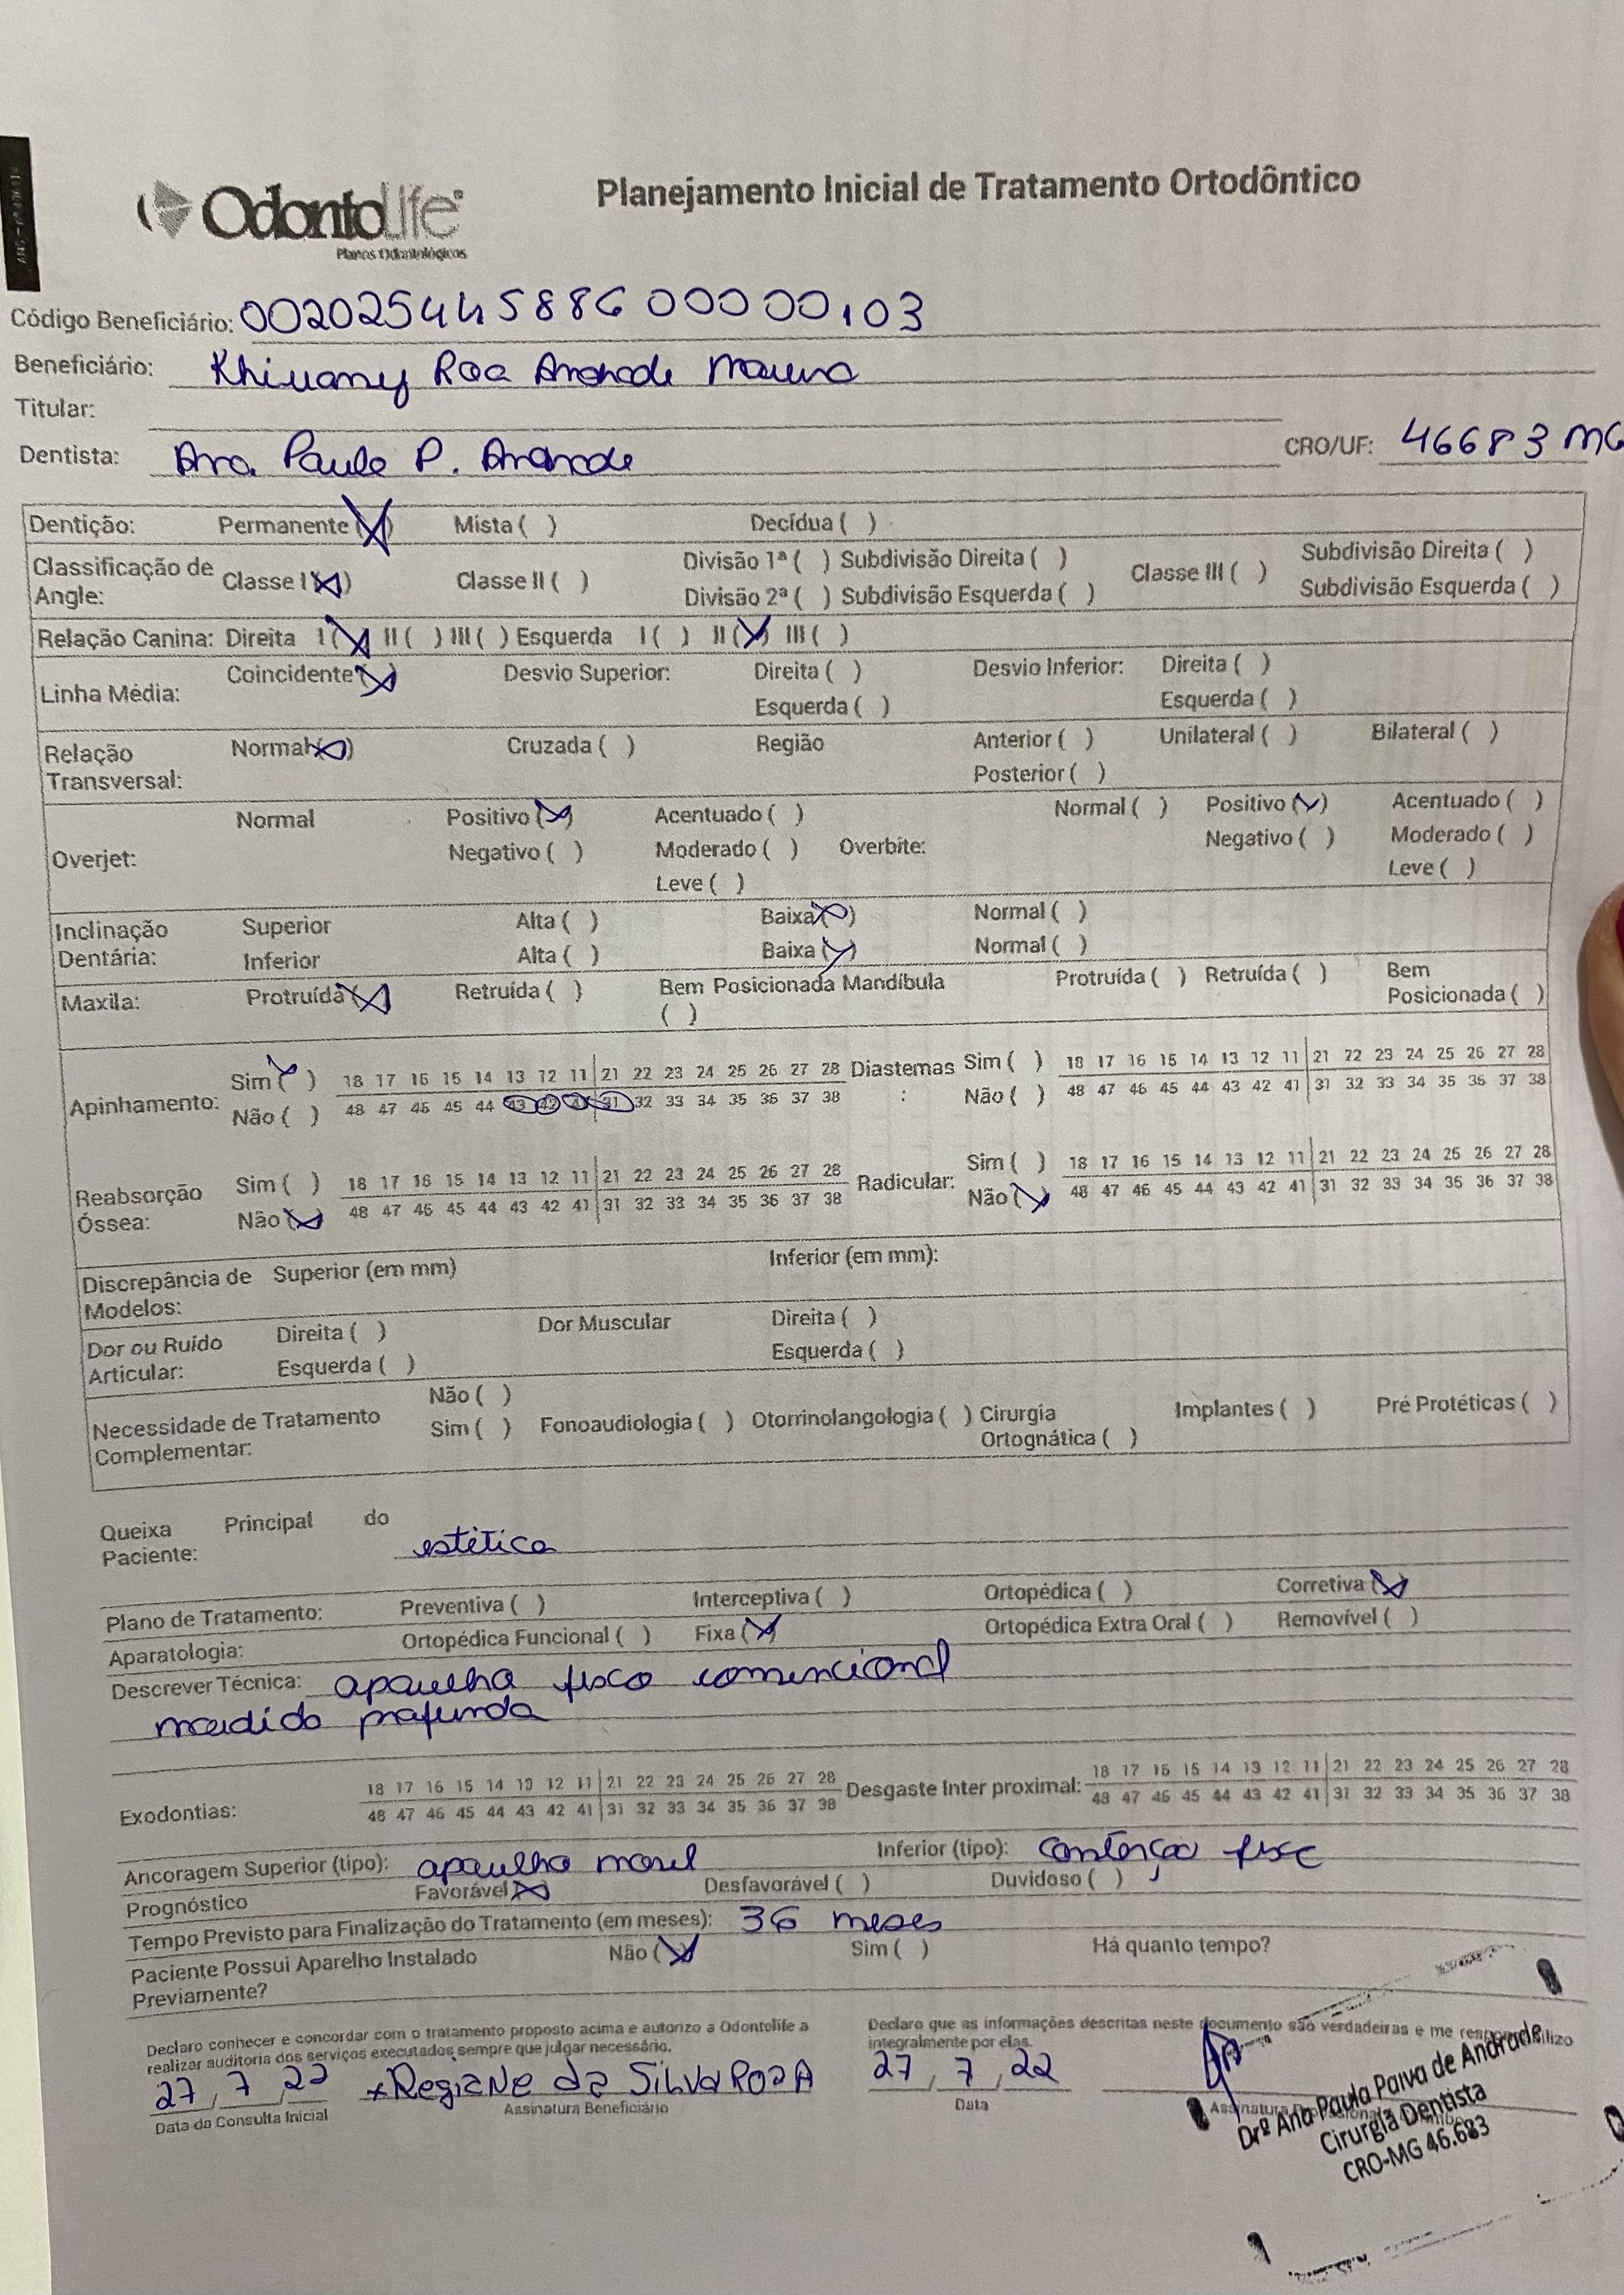 Odontolife
Planos Odontológicos
Planejamento Inicial de Tratamento Ortodôntico
Código Beneficiário: 00202544588600000103
Beneficiário: Andrade
Titular:
Dentista: Ana Paula P. Andrade CRO/UF: 46683 MG
Dentição: Permanente (X) Mista ( ) Decídua ( )
Classificação de Angle: Classe I (X) Classe II ( ) Divisão 1ª ( ) Subdivisão Direita ( ) Classe III ( ) Subdivisão Direita ( )
Divisão 2ª ( ) Subdivisão Esquerda ( ) Subdivisão Esquerda ( )
Relação Canina: Direita I (X) II ( ) III ( ) Esquerda I ( ) II (X) III ( )
Linha Média: Coincidente (X) Desvio Superior: Direita ( ) Desvio Inferior: Direita ( )
Esquerda ( ) Esquerda ( )
Relação Transversal: Normal (X) Cruzada ( ) Região Anterior ( ) Unilateral ( ) Bilateral ( )
Posterior ( )
Normal Positivo (X) Acentuado ( ) Normal ( ) Positivo (X) Acentuado ( )
Overjet: Negativo ( ) Moderado ( ) Overbite: Negativo ( ) Moderado ( )
Leve ( ) Leve ( )
Inclinação Superior Alta ( ) Baixa (X) Normal ( )
Dentária: Inferior Alta ( ) Baixa (X) Normal ( )
Maxila: Protruída (X) Retruída ( ) Bem Posicionada ( ) Mandíbula Protruída ( ) Retruída ( ) Bem Posicionada ( )
Apinhamento: Sim (X) 18 17 16 15 14 13 12 11 21 22 23 24 25 26 27 28 Diastemas: Sim ( ) 18 17 16 15 14 13 12 11 21 22 23 24 25 26 27 28
Não ( ) 48 47 46 45 44 43 42 41 31 32 33 34 35 36 37 38 Não ( ) 48 47 46 45 44 43 42 41 31 32 33 34 35 36 37 38
Reabsorção Sim ( ) 18 17 16 15 14 13 12 11 21 22 23 24 25 26 27 28 Radicular: Sim ( ) 18 17 16 15 14 13 12 11 21 22 23 24 25 26 27 28
Óssea: Não (X) 48 47 46 45 44 43 42 41 31 32 33 34 35 36 37 38 Não (X) 48 47 46 45 44 43 42 41 31 32 33 34 35 36 37 38
Discrepância de Modelos: Superior (em mm) Inferior (em mm):
Dor ou Ruído Direita ( ) Dor Muscular Direita ( )
Articular: Esquerda ( ) Esquerda ( )
Não ( )
Necessidade de Tratamento Complementar: Sim ( ) Fonoaudiologia ( ) Otorrinolangologia ( ) Cirurgia Ortognática ( ) Implantes ( ) Pré Protéticas ( )
Queixa Principal do
Paciente: estética
Plano de Tratamento: Preventiva ( ) Interceptiva ( ) Ortopédica ( ) Corretiva (X)
Aparatologia: Ortopédica Funcional ( ) Fixa (X) Ortopédica Extra Oral ( ) Removível ( )
Descrever Técnica: aparelho fixo convencional
mordida profunda
Exodontias: 18 17 16 15 14 13 12 11 21 22 23 24 25 26 27 28 Desgaste Inter proximal: 18 17 16 15 14 13 12 11 21 22 23 24 25 26 27 28
48 47 46 45 44 43 42 41 31 32 33 34 35 36 37 38 48 47 46 45 44 43 42 41 31 32 33 34 35 36 37 38
Ancoragem Superior (tipo): aparelho movel Inferior (tipo): contenção fixa
Prognóstico Favorável (X) Desfavorável ( ) Duvidoso ( )
Tempo Previsto para Finalização do Tratamento (em meses): 36 meses
Paciente Possui Aparelho Instalado Previamente? Não (X) Sim ( ) Há quanto tempo?
Declaro conhecer e concordar com o tratamento proposto acima e autorizo a Odontolife a
realizar auditoria dos serviços executados sempre que julgar necessário.
Declaro que as informações descritas neste documento são verdadeiras e me responsabilizo
integralmente por elas.
27/7/22 Regiane da Silva Rosa 27/7/22
Data da Consulta Inicial Assinatura Beneficiário Data
Drª Ana Paula Paiva de Andrade
Cirurgiã Dentista
CRO-MG 46.683